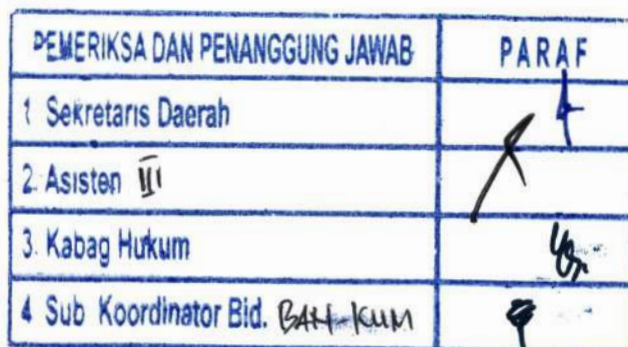 PEMERIKSA DAN PENANGGUNG JAWAB PARAF
1 Sekretaris Daerah
2. Asisten III
3. Kabag Hukum
4 Sub Koordinator Bid. BAN-KUM